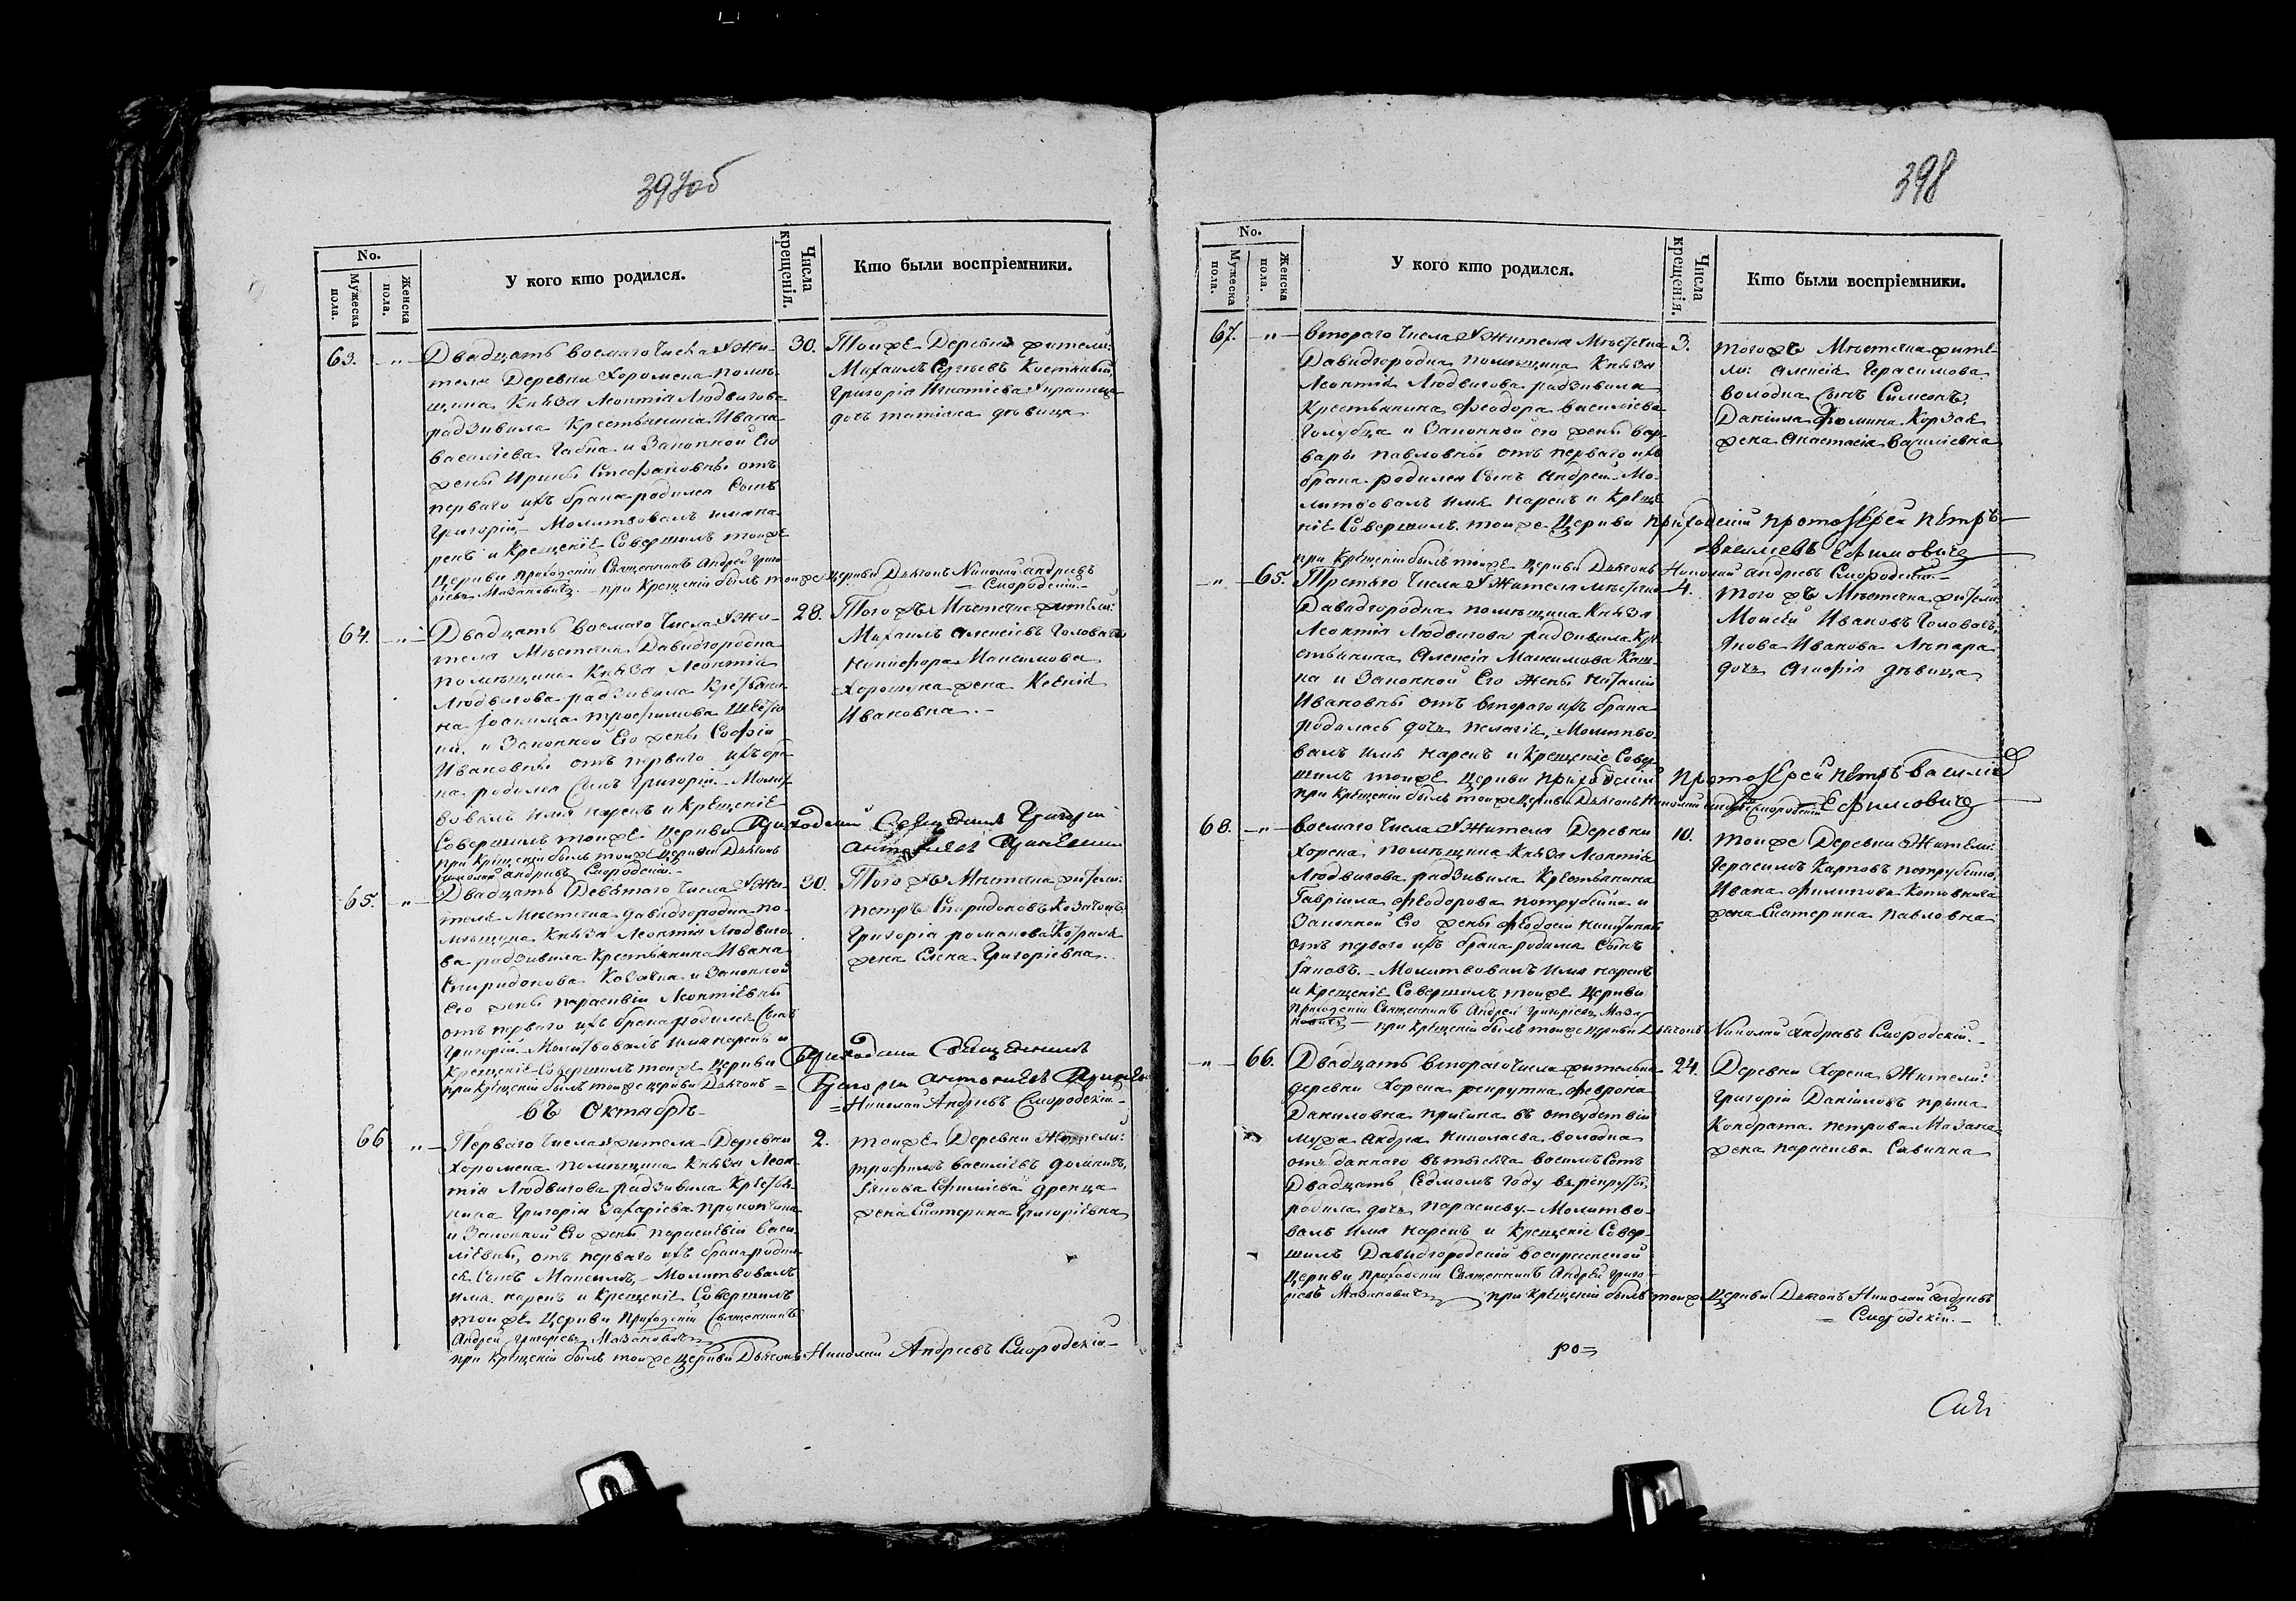 397об
No.
Мужеска пола.
Женска пола.
У кого кто родился.
Числа крещенія.
Кто были воспріемники.
63.
Двадцать восмаго числа У жи-
теля Деревни Хоромска помѣ-
щика Князя Леонтія Людвигова
радзивила Крестьянина Ивана
василіева Габца и Законной Его
жены Ирины Стефановны отъ
перваго ихъ брака родился Сынъ
Григорій. Молитвовалъ имя на-
рекъ и Крещеніе Совершилъ тойже
Церкви приходскій Священникъ Андрей Григо-
ріевъ Мазановичъ. - при Крещеніи былъ тойже церкви Дьячокъ Николай андріевъ
Смородскій -
30.
Тойже Деревни жители:
Михаилъ Сергѣевъ
Григорія Игнатіева
дочь татіана дѣвица
64.
Двадцать восмаго числа У жи-
теля Мѣстечка Давидгородка
помѣщика Князя Леонтія
Людвигова радзивила Крестьяни-
на Іоакима трофимова
и Законной Его жены Софіи
Ивановны отъ перваго ихъ бра-
ка родился Сынъ Григорій. Молит-
вовалъ имя нарекъ и Крещеніе
Совершилъ тойже Церкви Приходскій Священникъ Григорій
при Крещеніи былъ тойже церкви Дьячокъ
Николай андріевъ Смородскій. -
28.
Того жъ Мѣстечка жители:
Михаилъ алексіевъ Головачъ
никифора Максимова
Хорошуна жена Ксенія
Ивановна. -
65.
Двадцать Девятаго числа У жи-
теля Мѣстечка давидгородка по-
мѣщика Князя Леонтія Людвиго-
ва радзивила Крестьянина Ивана
Спиридонова Козачка и Законной
Его жены параскевіи Леонтіевны
отъ перваго ихъ брака родился Сынъ
Григорій. Молитвовалъ имя нарекъ и
Крещеніе Совершилъ тойже Церкви Приходскій Священникъ
при Крещеніи былъ тойже церкви Дьячокъ = Григорій
= Николай Андріевъ Смородскій -
30.
Того жъ Мѣстечка жители:
петръ Спиридоновъ Козачокъ
Григорія романова
жена Елена Григоріевна.
въ Октябрѣ -
66
Перваго числа У жителя Деревни
Хоромска помѣщика Князя Леон-
тія Людвигова радзивила Крестья-
нина Григорія Захаріева
и Законной Его жены параскевіи васи-
ліевны, отъ перваго ихъ брака родил-
ся Сынъ Максимъ, - Молитвовалъ
имя нарекъ и Крещеніе Совершилъ
тойже Церкви Приходскій Священникъ
Андрей Григоріевъ Мазановичъ
при Крещеніи былъ тойже Церкви Дьячокъ Николай Андреевъ Смородскій -
2.
тойже Деревни Жители:
трофимъ василіевъ
Іякова Ефиміева
жена Екатерина Григоріевна
398
No.
Мужеска пола.
Женска пола.
У кого кто родился.
Числа крещенія.
Кто были воспріемники.
67.
втораго числа У жителя Мѣстечка
Давидгородка помѣщика Князя
Леонтія Людвигова радзивила
Крестьянина Феодора василіева
Голубца и Законной его жены вар-
вары павловны отъ перваго ихъ
брака родился Сынъ Андрей. Мо-
литвовалъ имя нарекъ и Креще-
ніе Совершилъ тойже Церкви Приходскій протоіерей пётръ
василіевъ Ефимовичъ
при Крещеніи былъ тойже церкви Дьячокъ Николай андріевъ Смородскій. -
3.
тогожъ Мѣстечка жите-
ли: алексія Герасимова
володка Сынъ Симеонъ,
Даніила Фомина Корзак
жена анастасія василіевна
65.
Третьяго числа У жителя мѣстечка
Давидгородка помѣщика Князя
Леонтія Людвигова радзивила Кре-
стьянина Алексія Максимова
и Законной Его Жены наталіи
Ивановны отъ втораго ихъ брака
родилась дочь пелагія, Молитво-
валъ имя нарекъ и Крещеніе Совер-
шилъ тойже Церкви Приходскій Протоіерей пётръ василіев
при Крещеніи былъ тойже Церкви Дьячокъ Николай андріевъ Смородскій Ефимовичъ
4.
того жъ Мѣстечка жители:
Моисей Ивановъ Головачъ,
Якова Иванова
дочь Агафія дѣвица
68.
восмаго числа У Жителя Деревни
Хорска помѣщика Князя Леонтія
Людвигова радзивила Крестьянина
Гавріила феодорова потрубейка и
Законной Его жены феодосіи
отъ перваго ихъ брака родился сынъ
Іяковъ. - Молитвовалъ имя нарекъ
и Крещеніе Совершилъ тойже Церкви
Приходскій Священникъ Андрей Григоріевъ Маза-
новичъ - при Крещеніи былъ тойже церкви Дьячокъ Николай андріевъ Смородскій. -
10.
тойже Деревни Жители:
Герасимъ Карповъ потрубейко,
Ивана филипова
жена Екатерина павловна
66.
Двадцать втораго числа жителька
деревни Хорска рекрутка феврона
Даниловна прижила въ отсудствіи
мужа андрея николаева володка
отданнаго въ тысяча восемъ Сотъ
Двадцать Седмомъ году въ рекруты,
родила дочь параскеву. - Молитво-
валъ имя нарекъ и Крещеніе Совер-
шилъ Давидгородской воскресенской
Церкви Приходскій Священникъ Андрей Григо-
ріевъ Мазановичъ при Крещеніи былъ тойже Церкви Дьячокъ Николай андріевъ
= Смородскій. -
24.
Деревни Хорска Жители:
Григорій Даніиловъ
Кондрата петрова
жена параскева Савична
ро=